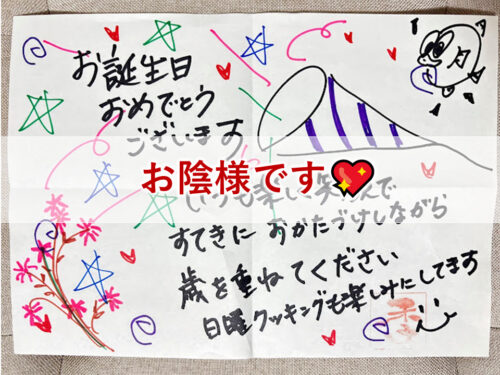 お誕生日
おめでとう
ございます
お陰様です💖
いつも楽しく笑んで
すてきに おかたづけしながら
歳を重ねてください
日曜クッキングも楽しみにしてます